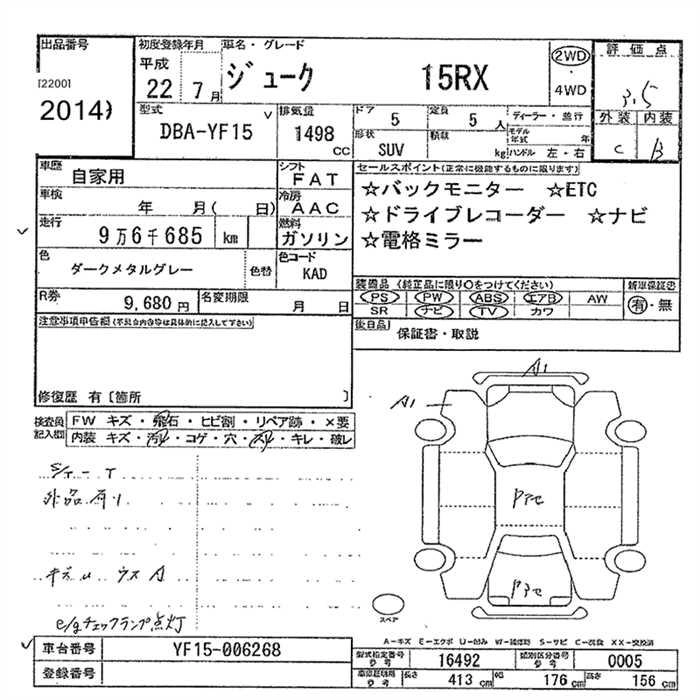 出品番号
[2200]
2014
初度登録年月
平成
22 7月
車名・グレード
ジューク 15RX
2WD
・
4WD
評価点
3.5
外装 内装
C B
型式
DBA-YF15
排気量
1498 CC
ドア 5
定員 5 人
形状
SUV
積載 kg
ディーラー・並行
モデル年式 年
ハンドル 左・右
車歴
自家用
シフト
FAT
車検
年 月( 日)
冷房
AAC
走行
9万6千685 km
燃料
ガソリン
色
ダークメタルグレー
色替
色コード
KAD
R券
9,680円
名変期限
月 日
セールスポイント(正常に機能するものに限ります)
☆バックモニター ☆ETC
☆ドライブレコーダー ☆ナビ
☆電格ミラー
装備品 (純正品に限り○をつけてください)
PS PW ABS エアB AW
SR ナビ TV カワ
新車保証書
有・無
後日品
保証書・取説
注意事項申告欄(不具合内容等は具体的に記入して下さい)
修復歴 有〔箇所 〕
検査員記入欄
FW キズ・飛石・ヒビ割・リペア跡・×要
内装 キズ・汚れ・コゲ・穴・スレ・キレ・破レ
S/T-T
外品有り
キズu ウスA
e/gチェックランプ点灯
A1
A1
Pアセ
Pアセ
スペア
A-キズ E-エクボ U-凹み W-補修跡 S-サビ C-腐食 XX-交換済
車台番号
YF15-006268
登録番号
型式指定番号 参考 16492
類別区分番号 参考 0005
車両証明用 参考 長さ 413 cm 幅 176 cm 高さ 156 cm